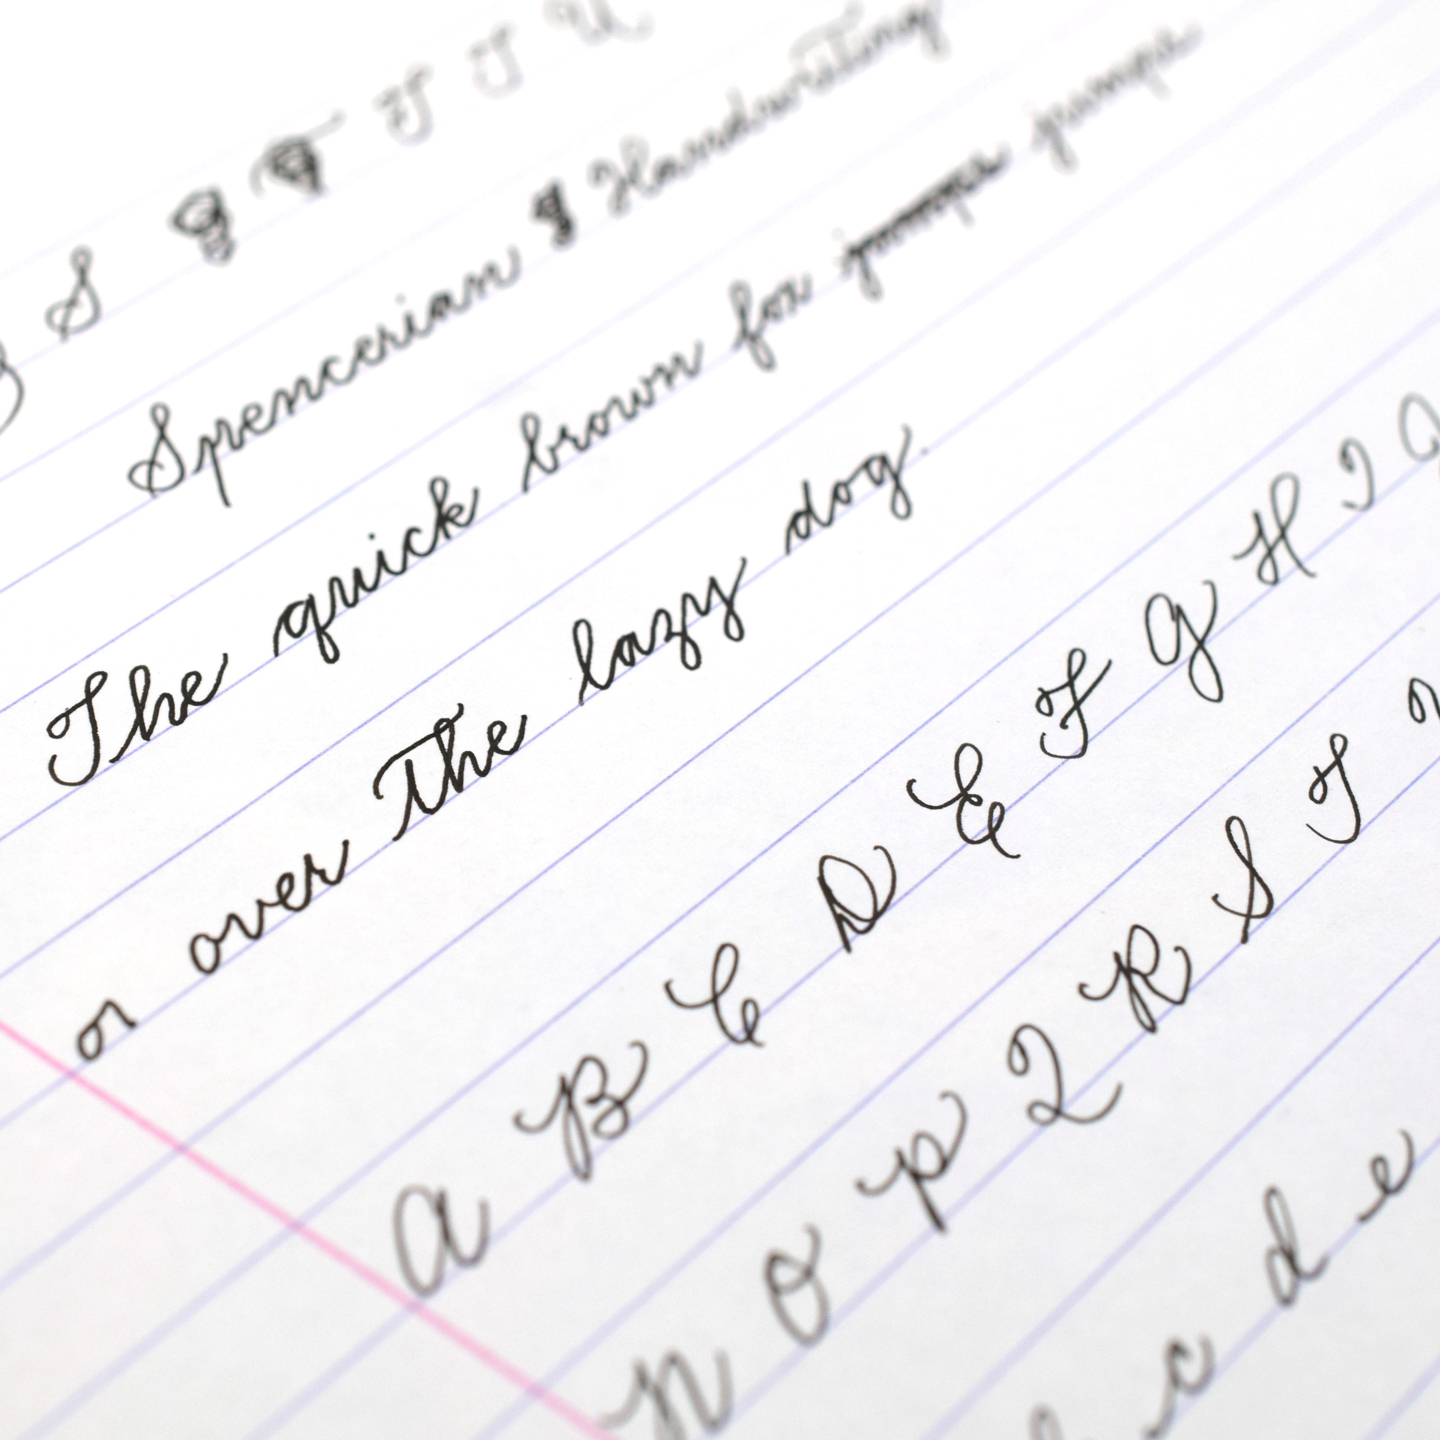 S T U
Spencerian Handwriting
The quick brown fox jumps jumps
or over the lazy dog.
A B C D E F G H I
N O P Q R S T
c d e